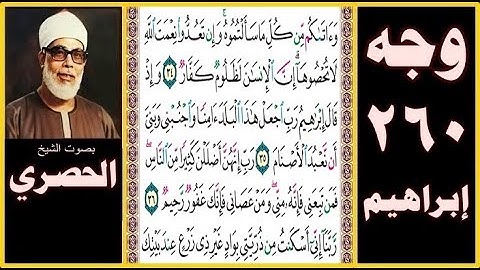 وجه
٢٦٠
إبراهيم
وَءَاتَىٰكُم مِّن كُلِّ مَا سَأَلْتُمُوهُ وَإِن تَعُدُّوا۟ نِعْمَتَ ٱللَّهِ
لَا تُحْصُوهَآ إِنَّ ٱلْإِنسَٰنَ لَظَلُومٌ كَفَّارٌ ٣٤ وَإِذْ
قَالَ إِبْرَٰهِيمُ رَبِّ ٱجْعَلْ هَٰذَا ٱلْبَلَدَ ءَامِنًا وَٱجْنُبْنِى وَبَنِىَّ
أَن نَّعْبُدَ ٱلْأَصْنَامَ ٣٥ رَبِّ إِنَّهُنَّ أَضْلَلْنَ كَثِيرًا مِّنَ ٱلنَّاسِ
فَمَن تَبِعَنِى فَإِنَّهُۥ مِنِّى وَمَنْ عَصَانِى فَإِنَّكَ غَفُورٌ رَّحِيمٌ ٣٦
رَّبَّنَآ إِنِّىٓ أَسْكَنتُ مِن ذُرِّيَّتِى بِوَادٍ غَيْرِ ذِى زَرْعٍ عِندَ بَيْتِكَ
بصوت الشيخ
الحصري